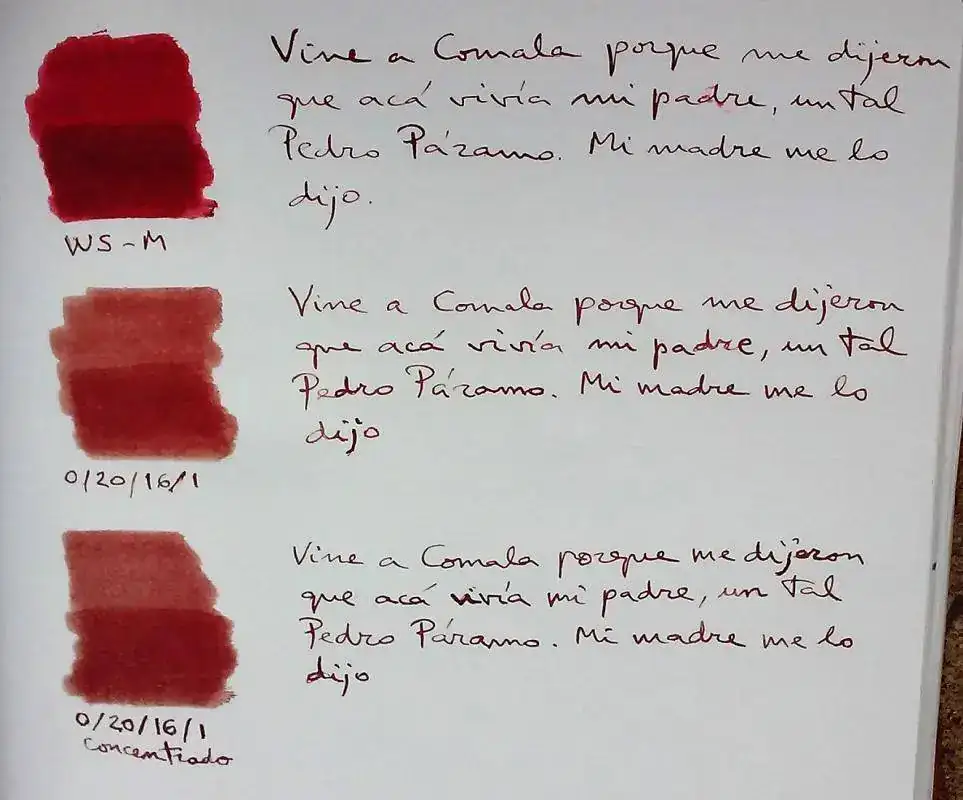 Vine a Comala porque me dijeron
que acá vivía mi padre, un tal
Pedro Páramo. Mi madre me lo
dijo.
WS-M
Vine a Comala porque me dijeron
que acá vivía mi padre, un tal
Pedro Páramo. Mi madre me lo
dijo
0/20/16/1
Vine a Comala porque me dijeron
que acá vivía mi padre, un tal
Pedro Páramo. Mi madre me lo
dijo
0/20/16/1
concentrado